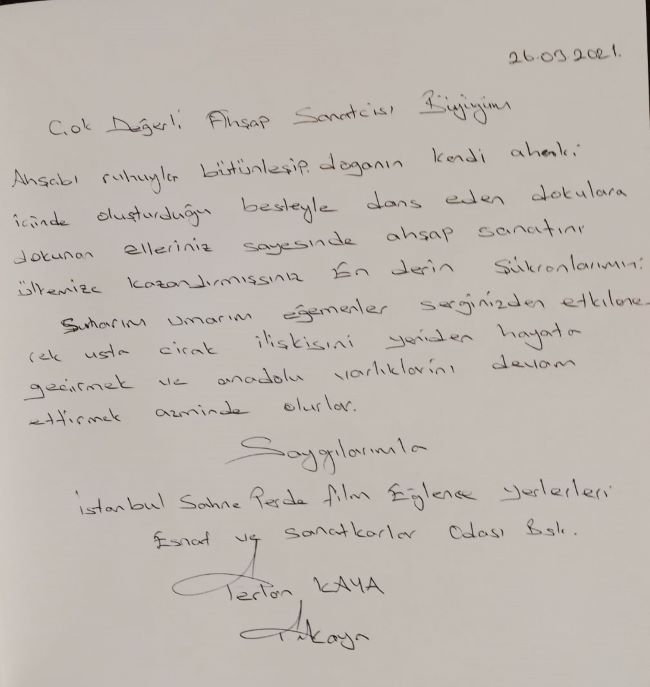 26.03.2021.
Çok Değerli Ahşap Sanatcısı Büyüğüm
Ahşabı ruhuyla bütünleşip doganın kendi ahenki
içinde oluşturduğu besteyle dans eden dokulara
dokunan elleriniz sayesinde ahşap sanatını
ülkemize kazandırmışsınız En derin Şükranlarımı
Sunarım umarım eğemenler serginizden etkilene-
rek usta cırak ilişkisini yeniden hayata
geçirmek ve anadolu varlıklarını devam
ettirmek azminde olurlar.
Saygılarımla
istanbul Sahne Perde film Eğlence yerleri
Esnaf ve sanatkarlar Odası Bşk.
KAYA